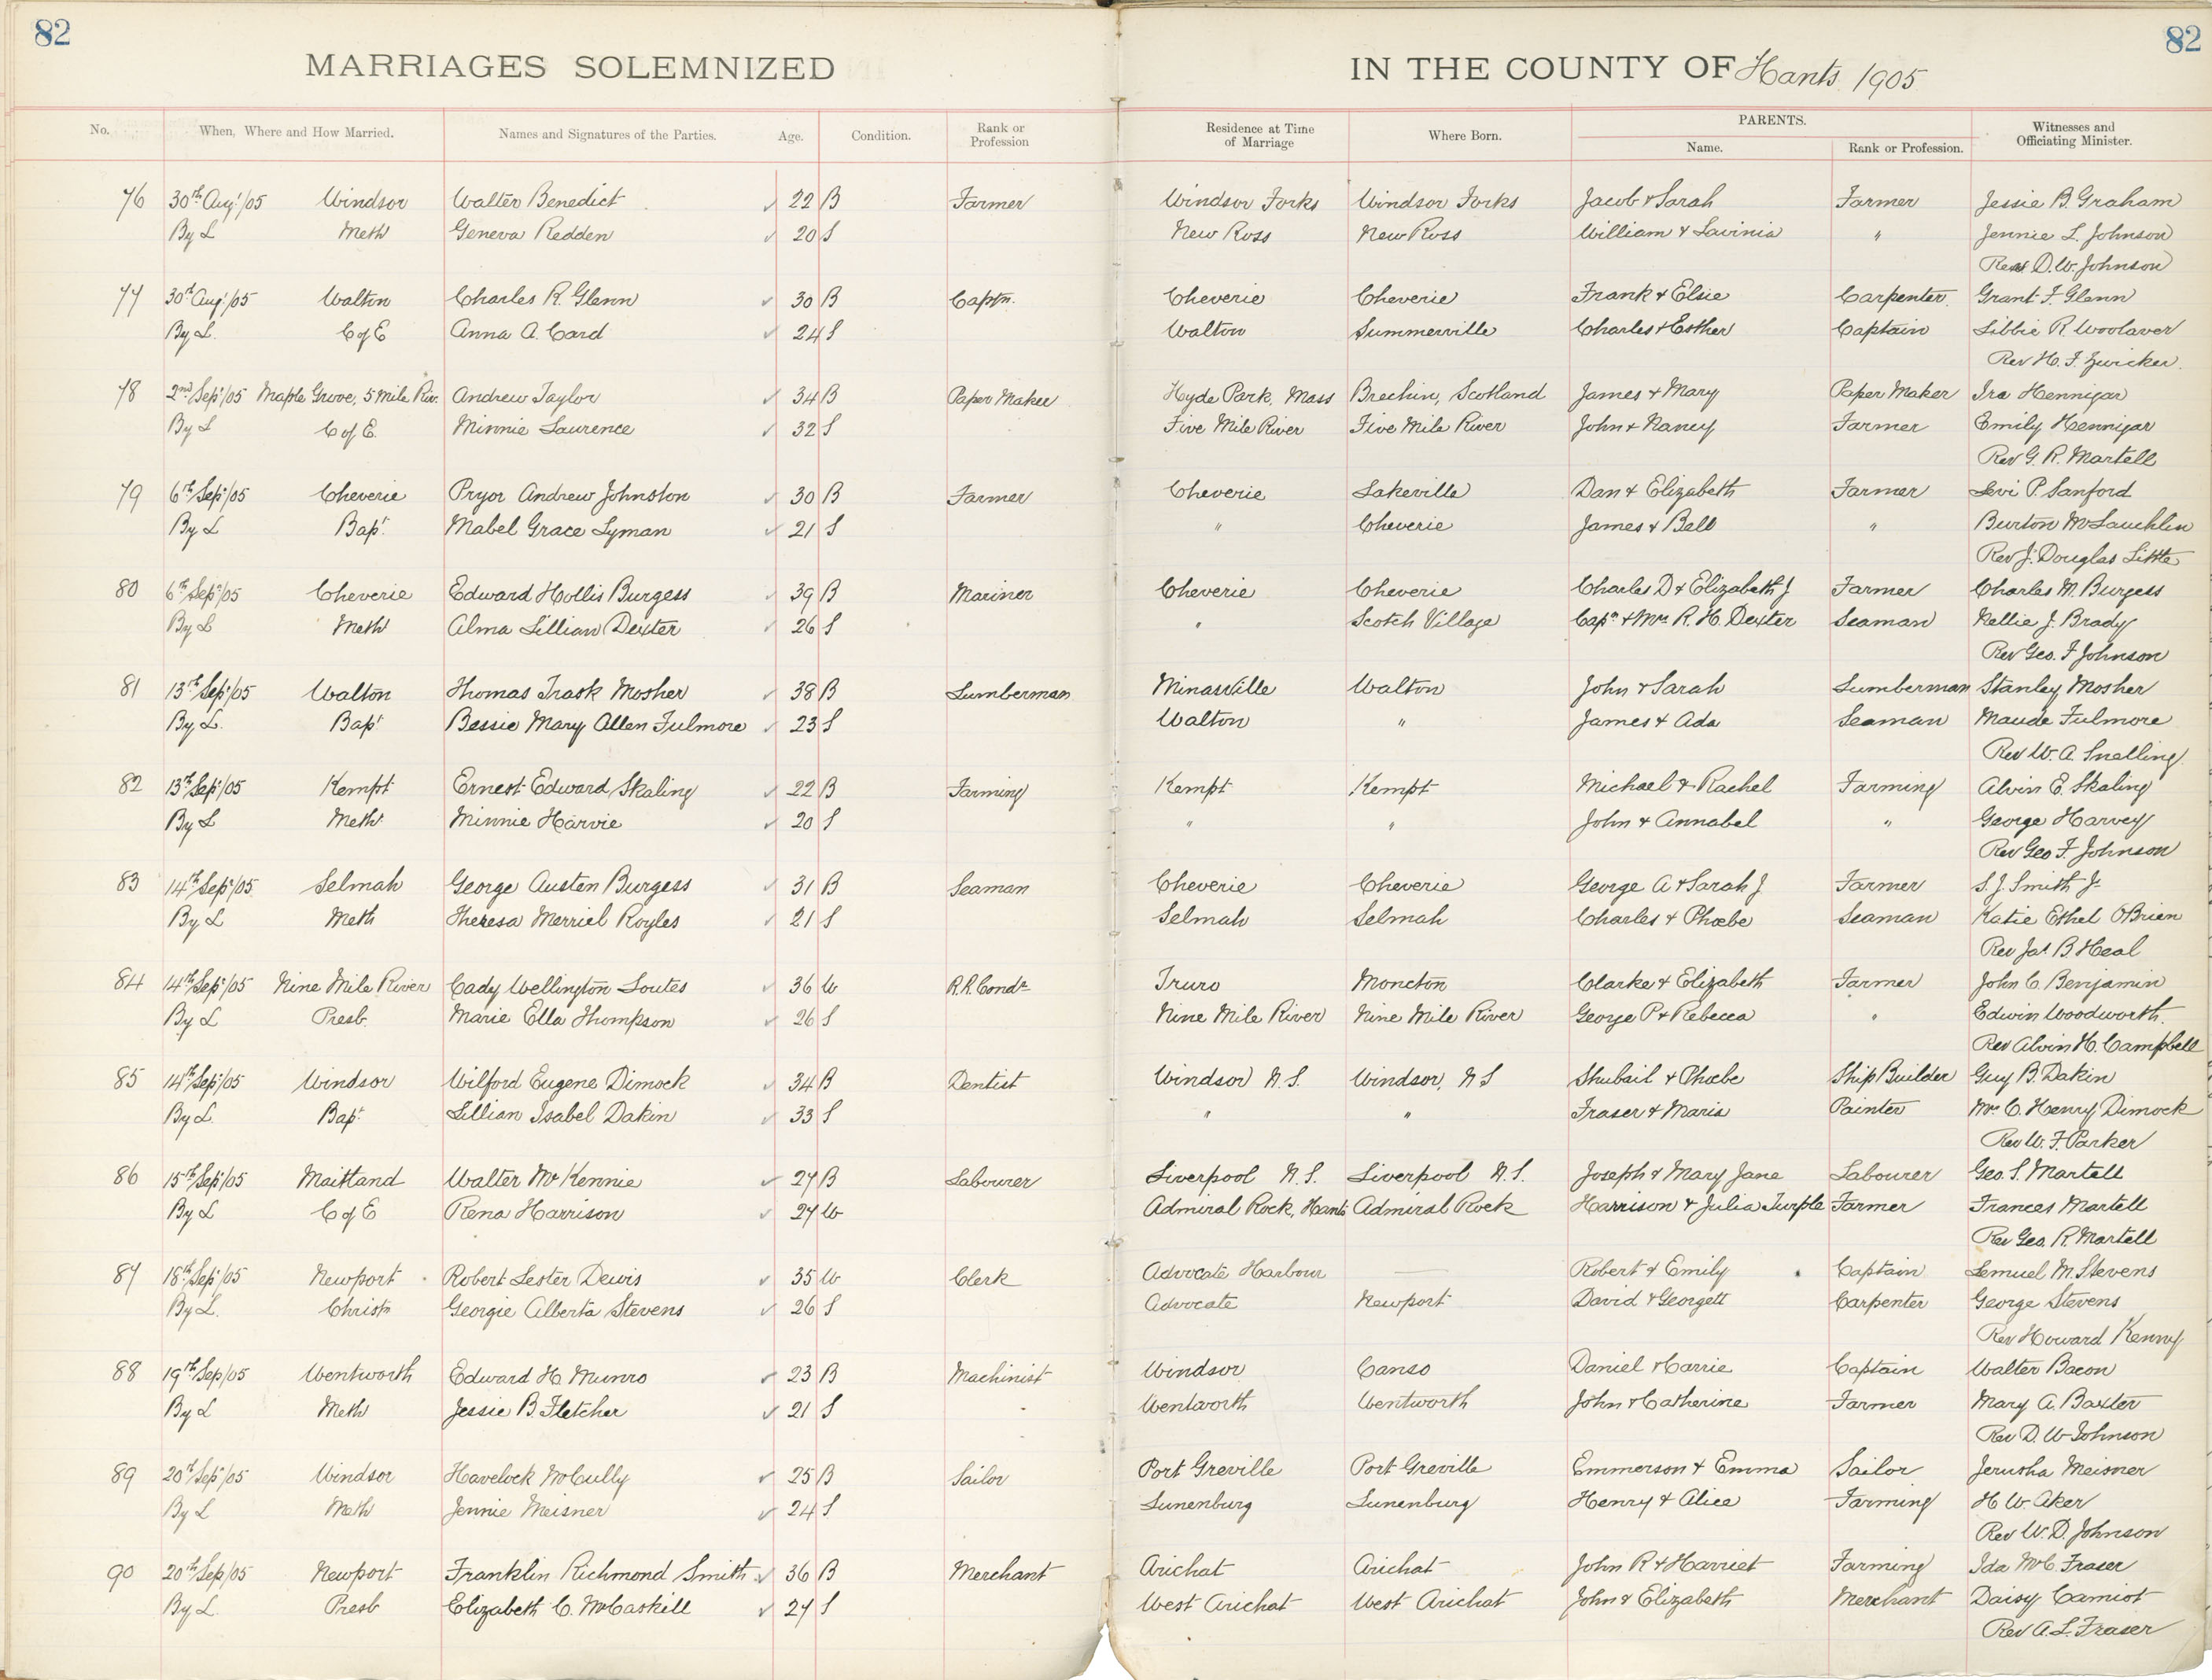 82
82
MARRIAGES SOLEMNIZED IN THE COUNTY OF Hants 1905
No. When, Where and How Married. Names and Signatures of the Parties. Age. Condition. Rank or Profession Residence at Time of Marriage Where Born. PARENTS. Name. Rank or Profession. Witnesses and Officiating Minister.
76 30th Augt/05 Windsor Walter Benedict 22 B Farmer Windsor Forks Windsor Forks Jacob & Sarah Farmer Jessie B. Graham
By L Meth Geneva Redden 20 S New Ross New Ross William & Lavinia " Jennie L. Johnson
Rev D. W. Johnson
77 30th Augt/05 Walton Charles R. Glenn 30 B Captn. Cheverie Cheverie Frank & Elsie Carpenter. Grant F. Glenn
By L. C of E Anna A. Card 24 S Walton Summerville Charles & Esther Captain Libbie R. Woolaver
Rev H. F. Zwicker.
78 2nd Sept/05 Maple Grove, 5 Mile Riv. Andrew Taylor 34 B Paper Maker Hyde Park, Mass Brechin, Scotland James & Mary Paper Maker Ira Hennigar
By L C of E. Minnie Laurence 32 S Five Mile River Five Mile River John & Nancy Farmer Emily Hennigar
Rev G. R. Martell
79 6th Sept/05 Cheverie Pryor Andrew Johnston 30 B Farmer Cheverie Lakeville Dan & Elizabeth Farmer Levi P. Sanford
By L Bapt. Mabel Grace Lyman 21 S " Cheverie James & Bell " Burton McLauchlin
Rev J. Douglas Little
80 6th Sept/05 Cheverie Edward Hollis Burgess 39 B Mariner Cheverie Cheverie Charles D & Elizabeth J Farmer Charles M. Burgess
By L Meth Alma Lillian Dexter 26 S " Scotch Village Capn & Mrs R. H. Dexter Seaman Nellie J. Brady
Rev Geo. F Johnson
81 13th Sept/05 Walton Thomas Trask Mosher 38 B Lumberman Minasville Walton John & Sarah Lumberman Stanley Mosher
By L. Bapt Bessie Mary Allen Fulmore 23 S Walton " James & Ada Seaman Maude Fulmore
Rev W. A. Snelling.
82 13th Sept/05 Kempt Ernest Edward Skaling 22 B Farming Kempt Kempt Michael & Rachel Farming Alvin E. Skaling
By L Meth. Minnie Harvie 20 S " " John & Annabel " George Harvey
Rev Geo F. Johnson
83 14th Sept/05 Selmah George Austen Burgess 31 B Seaman Cheverie Cheverie George A & Sarah J Farmer S. J. Smith Jr
By L Meth Theresa Merriel Royles 21 S Selmah Selmah Charles & Phoebe Seaman Katie Ethel OBrien
Rev Jas B. Heal
84 14th Sept/05 Nine Mile River Cady Wellington Soutes 36 W R.R. Condr Truro Moncton Clarke & Elizabeth Farmer John C. Benjamin
By L Presb. Marie Ella Thompson 26 S Nine Mile River Nine Mile River George P & Rebecca " Edwin Woodworth.
Rev Alvin H. Campbell
85 14th Sept/05 Windsor Wilford Eugene Dimock 34 B Dentist Windsor N.S. Windsor, N S Shubail & Phoebe Ship Builder Guy B. Dakin
By L. Bapt. Lillian Isabel Dakin 33 S " " Fraser & Maria Painter Mrs C. Henry Dimock
Rev W. F. Parker
86 15th Sept/05 Maitland Walter McKennie 27 B Labourer Liverpool N.S. Liverpool N.S. Joseph & Mary Jane Labourer Geo. S. Martell
By L C of E Rena Harrison 27 W Admiral Rock, Hants Admiral Rock Harrison & Julia Turple Farmer Frances Martell
Rev Geo. R. Martell
87 18th Sept/05 Newport Robert Lester Dewis 35 W Clerk Advocate Harbour — Robert & Emily Captain Lemuel M. Stevens
By L. Christn Georgie Alberta Stevens 26 S Advocate Newport David & Georgett Carpenter George Stevens
Rev Howard Kenny
88 19th Sep/05 Wentworth Edward H. Munro 23 B Machinist Windsor Canso Daniel & Carrie Captain Walter Bacon
By L Meth Jessie B. Fletcher 21 S Wentworth Wentworth John & Catherine Farmer Mary A. Baxter
Rev D. W Johnson
89 20th Sept/05 Windsor Havelock McCully 25 B Sailor Port Greville Port Greville Emmerson & Emma Sailor Jerusha Meisner
By L Meth Jennie Meisner 24 S Lunenburg Lunenburg Henry & Alice Farming H W. Aker
Rev W. D. Johnson
90 20th Sep/05 Newport Franklin Richmond Smith 36 B Merchant Arichat Arichat John R & Harriet Farming Ida McC. Fraser
By L. Presb Elizabeth C. McCaskill 27 S West Arichat West Arichat John & Elizabeth Merchant Daisy Camiot
Rev A. L. Fraser